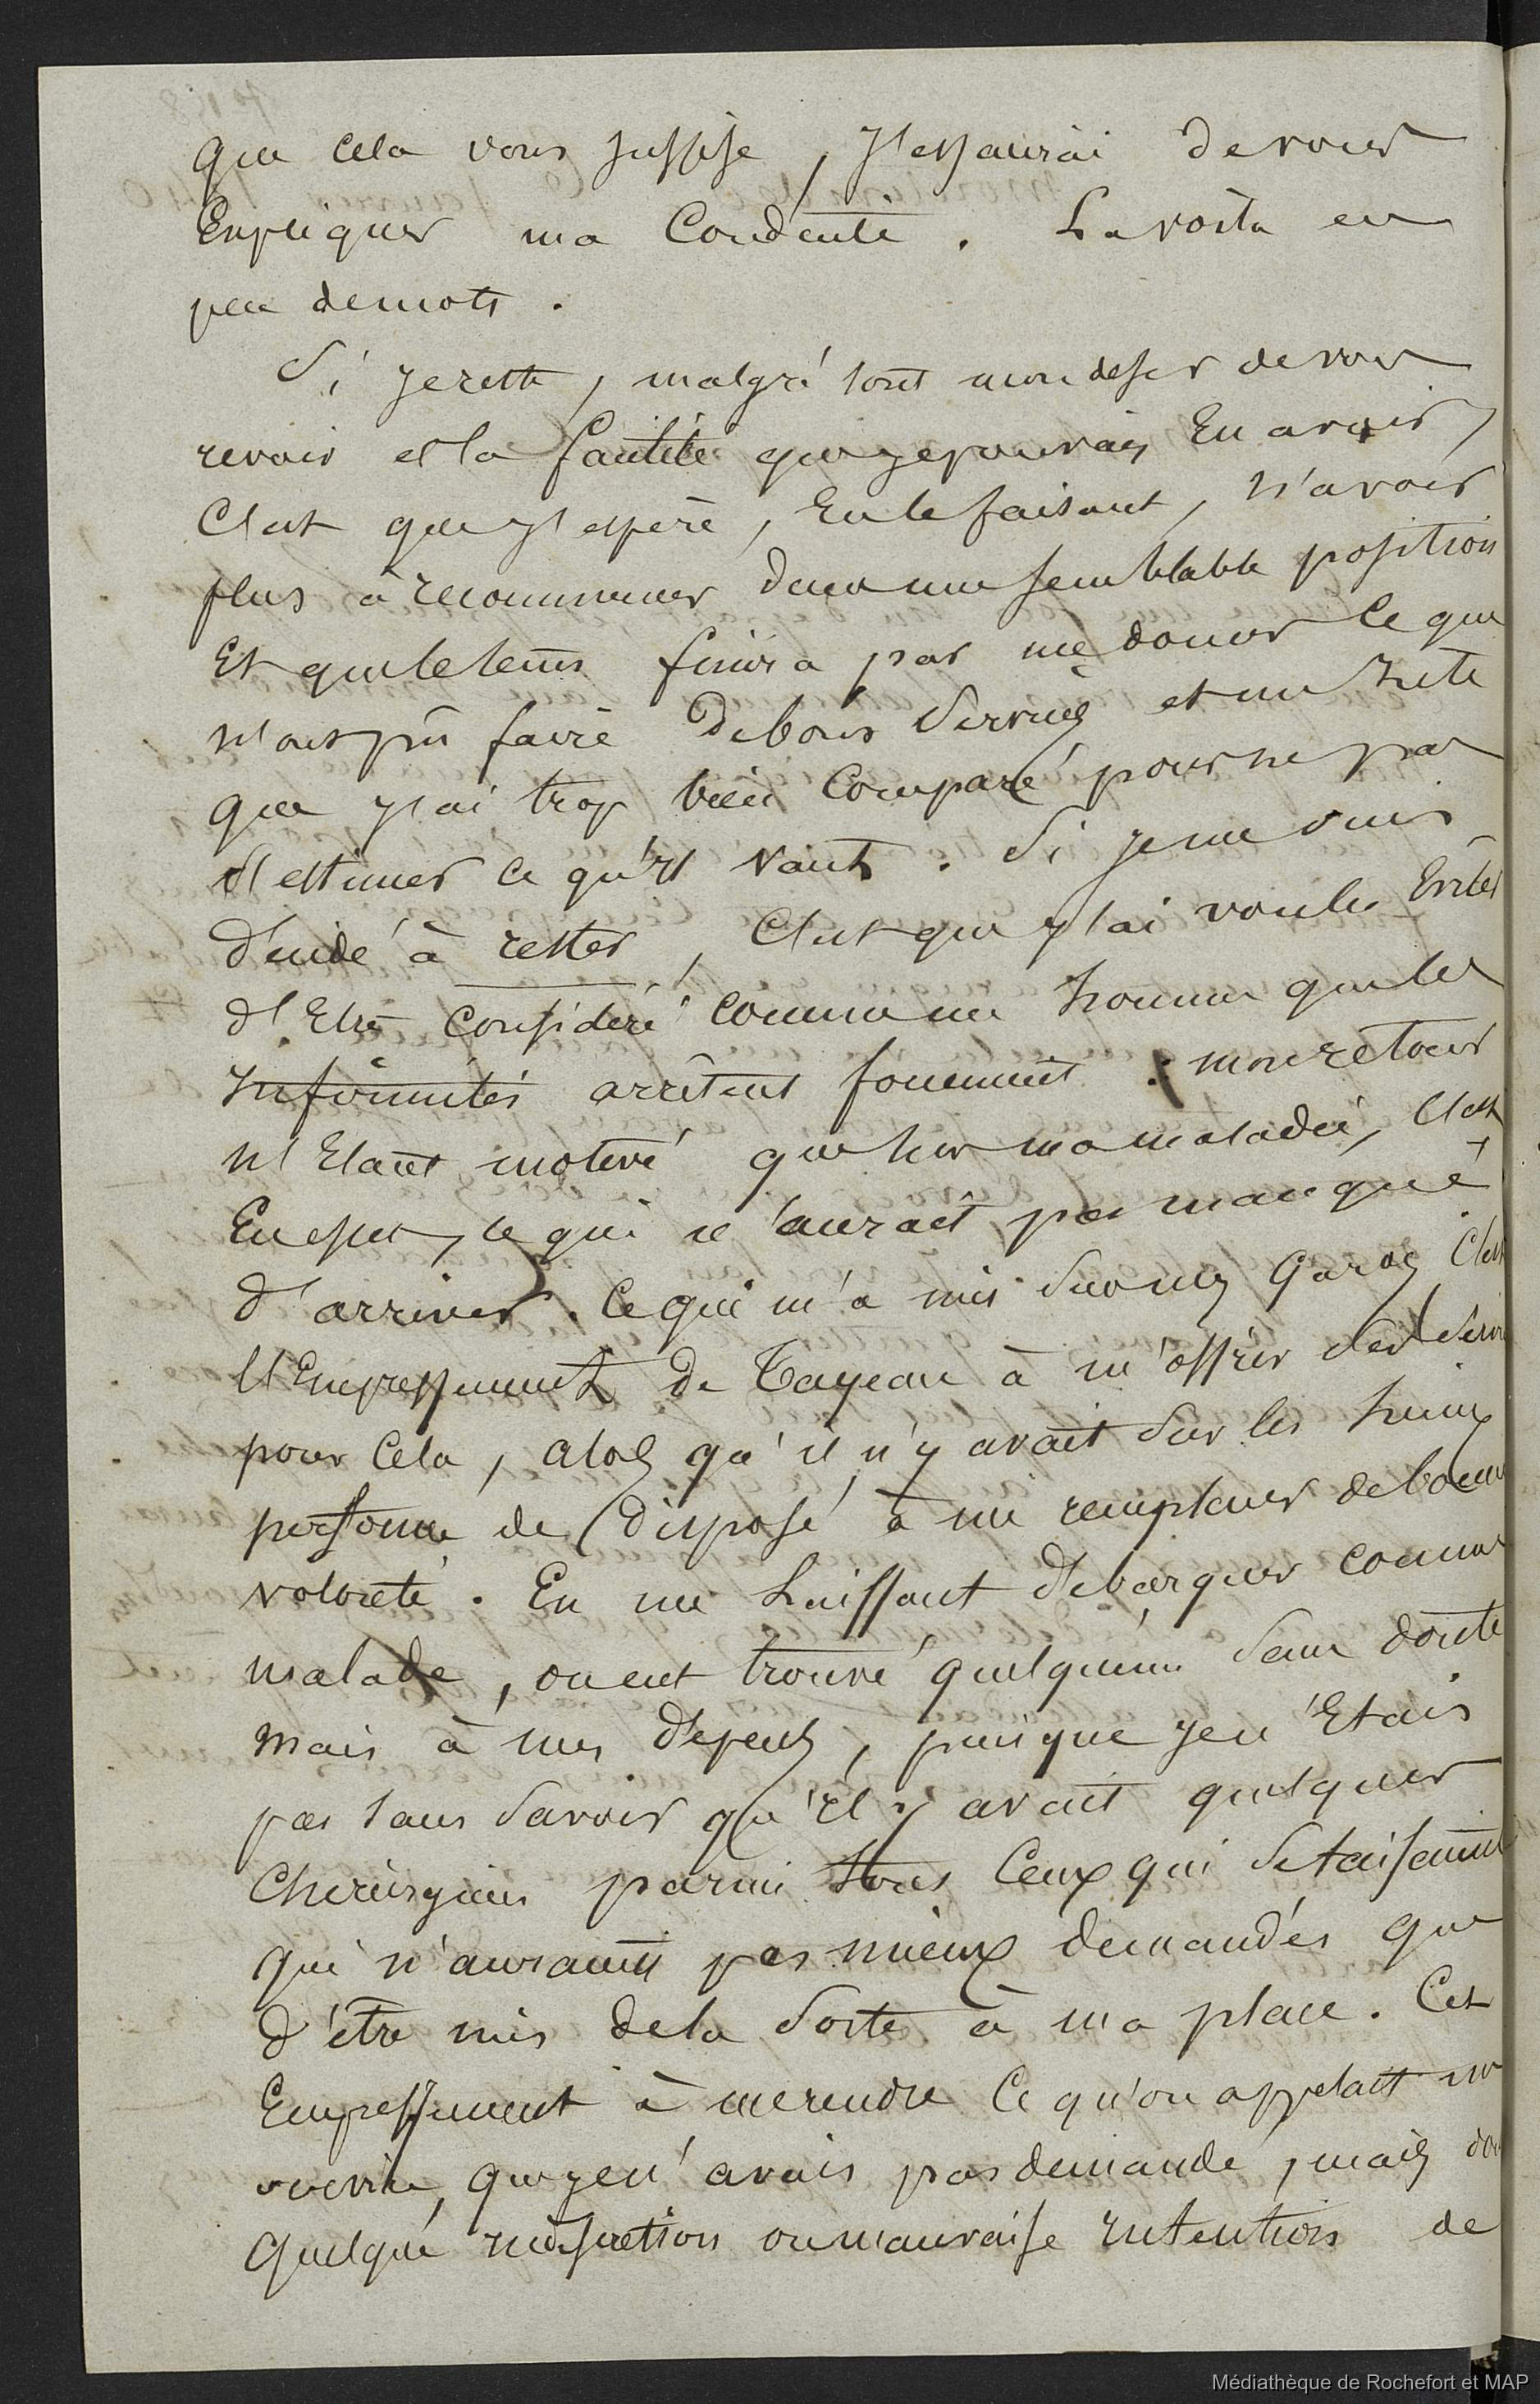 que cela vous suffise, j'essaurai de vous
Expliquer ma Conduite. La voila en
peu de mots.
Si je reste, malgré tout mon desir de vous
revoir et la facilité que je pouvais En avoir,
C'est que j'espere, En le faisant, n'avoir
plus à recommencer dans une semblable position
Et que le tems finira par me donner Ce que
n'ont pû faire de bons Services et un zele
que j'ai trop bien Comparé pour ne pas
d'estimer ce qu'il vaut. Si je me suis
décidé à rester, C'est que j'ai voulu Eviter
d'Etre Considéré comme un homme que les
Infirmités arrêtent forcement. mon retour
n'Etant motivé que sur ma maladie, C'est
En effet, ce qui n'aurait pas manqué
d'arriver. Ce qui m'a mis sur mes Gardes C'est
l'Empressement de Tayeau à m'offrir des
pour Cela, alors qu'il n'y avait sur les lieux
personne de disposé à me remplacer de bonne
volonté. En me Laissant débarquer comme
malade, on eut trouvé quelqu'un sans doute
mais à mes depens, puisque je n'Etais
pas sans Savoir qu'il y avait quelques
Chirurgiens parmi tous Ceux qui se taisaient
qui n'auraient pas mieux demandés que
d'être mis de la Sorte à ma place. Cet
Empressement à me rendre Ce qu'on appelait un
service, que je n'avais pas demandé, mais
quelque indiscretion ou mauvaise Intention de
Médiathèque de Rochefort et MAP